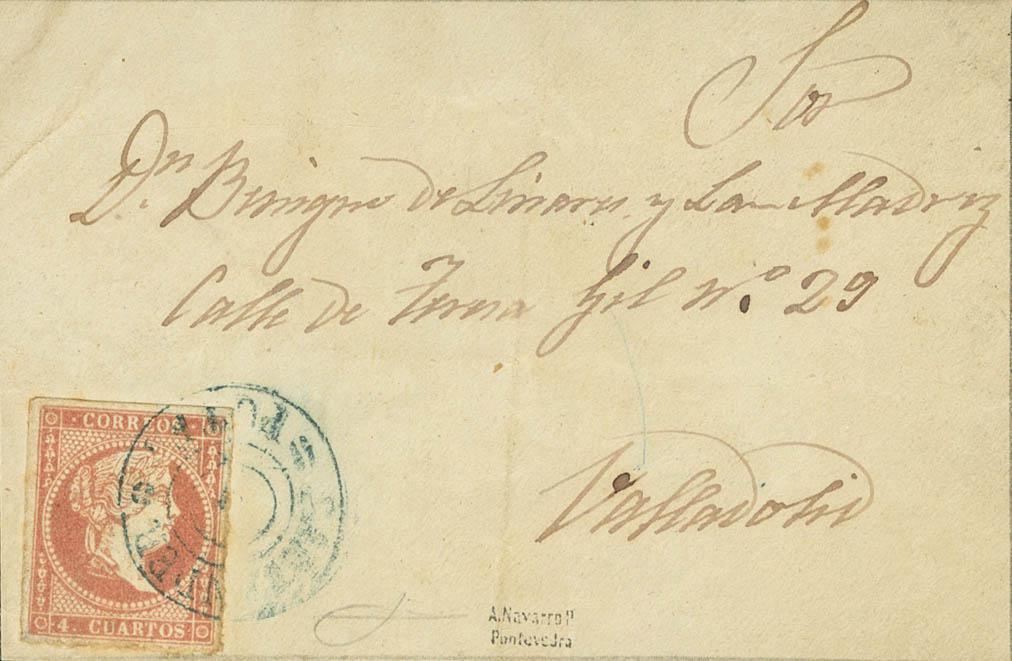 Sor
Dn. Benigno de Linares y La Madriz
Calle de Teresa Gil No. 29
Valladolid
CORREOS
4. CUARTOS
A.Navarro P
Pontevedra